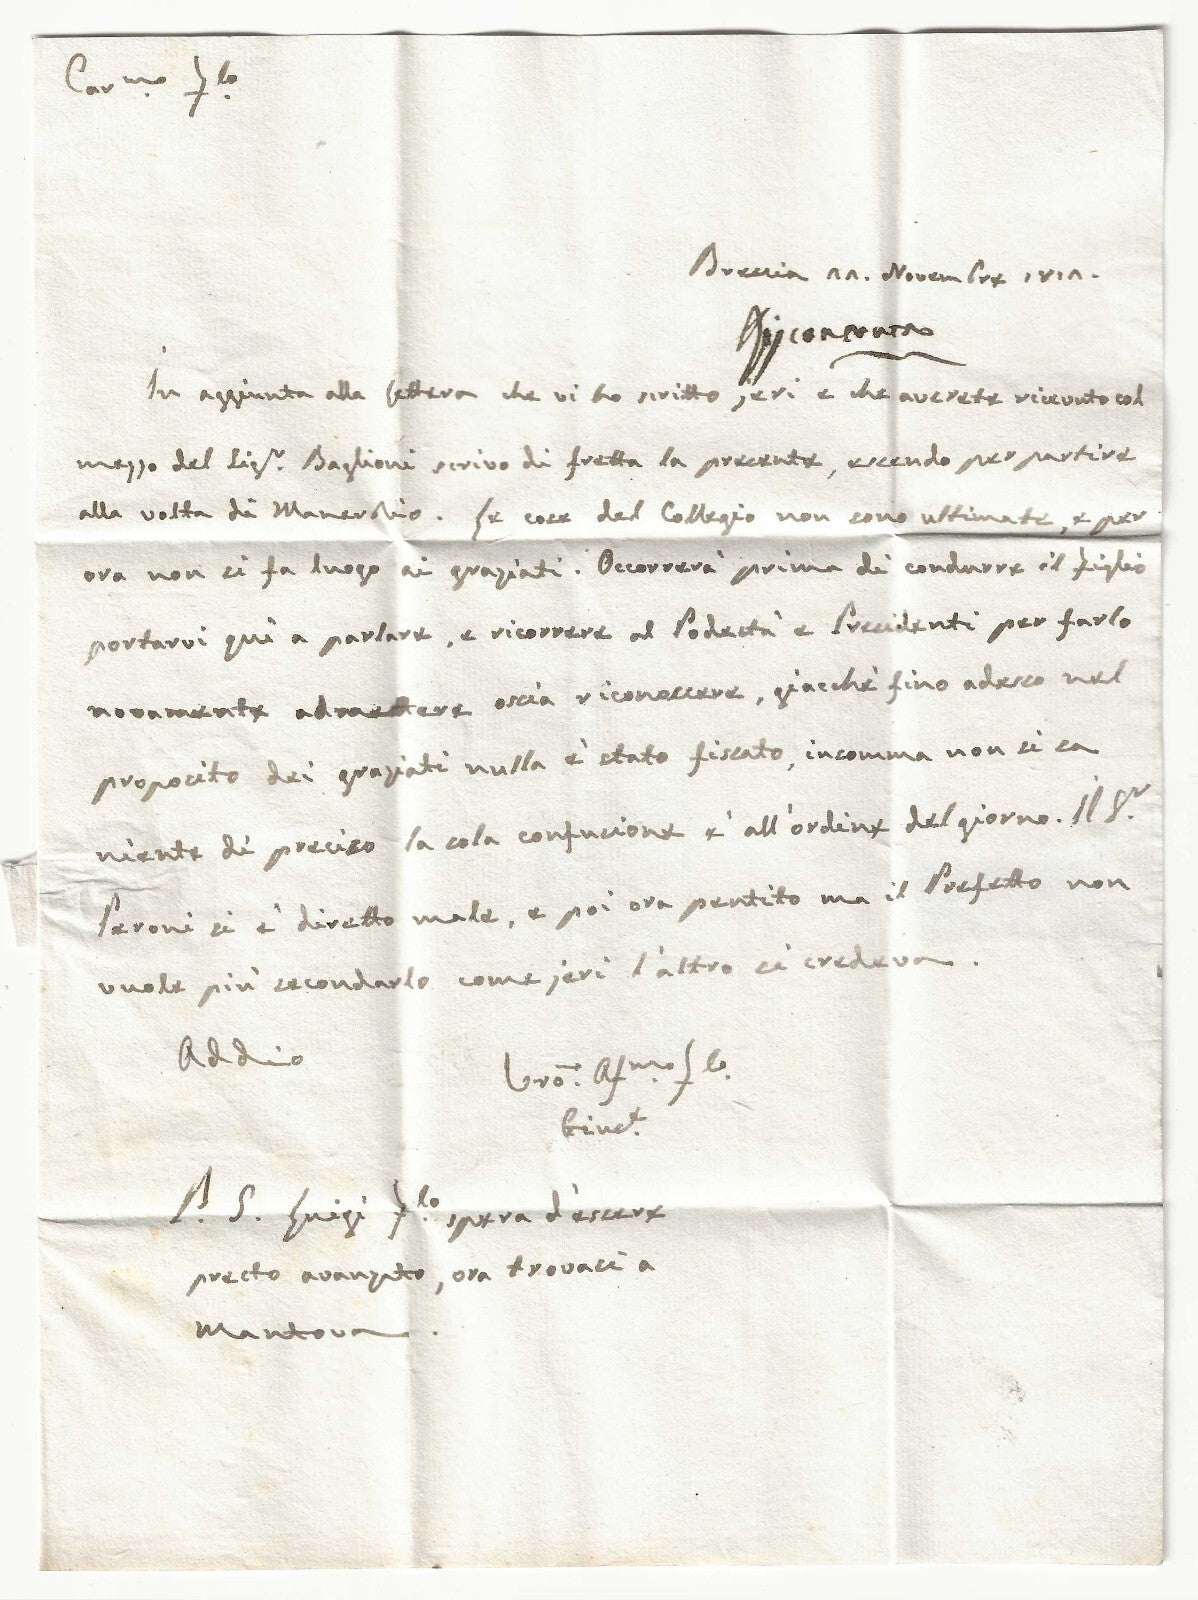 Car.mo F.llo
Brescia 11. Novembre 1811.
In aggiunta alla lettera che vi ho scritto jeri e che averete ricevuto col
mezzo del Sig.r Baglioni scrivo di fretta la presente, essendo per partire
alla volta di Manerbio. Le cose del Collegio non sono ultimate, e per
ora non si fa luogo ai graziati. Occorrerà prima di condurre il figlio
portarvi quì a parlare, e ricorrere al Podestà e Presidenti per farlo
novamente admettere ossia riconoscere, giacchè fino adesso nel
proposito dei graziati nulla è stato fissato, insomma non si sa
niente di preciso la sola confusione è all'ordine del giorno. Il S.r
Peroni si è diretto male, e poi ora pentito ma il Prefetto non
vuole più secondarlo come jeri l'altro si credeva.
Addio
Vro. Aff.mo F.llo
P. S. Luigi F.llo spera d'essere
presto avanzato, ora trovasi a
Mantova.